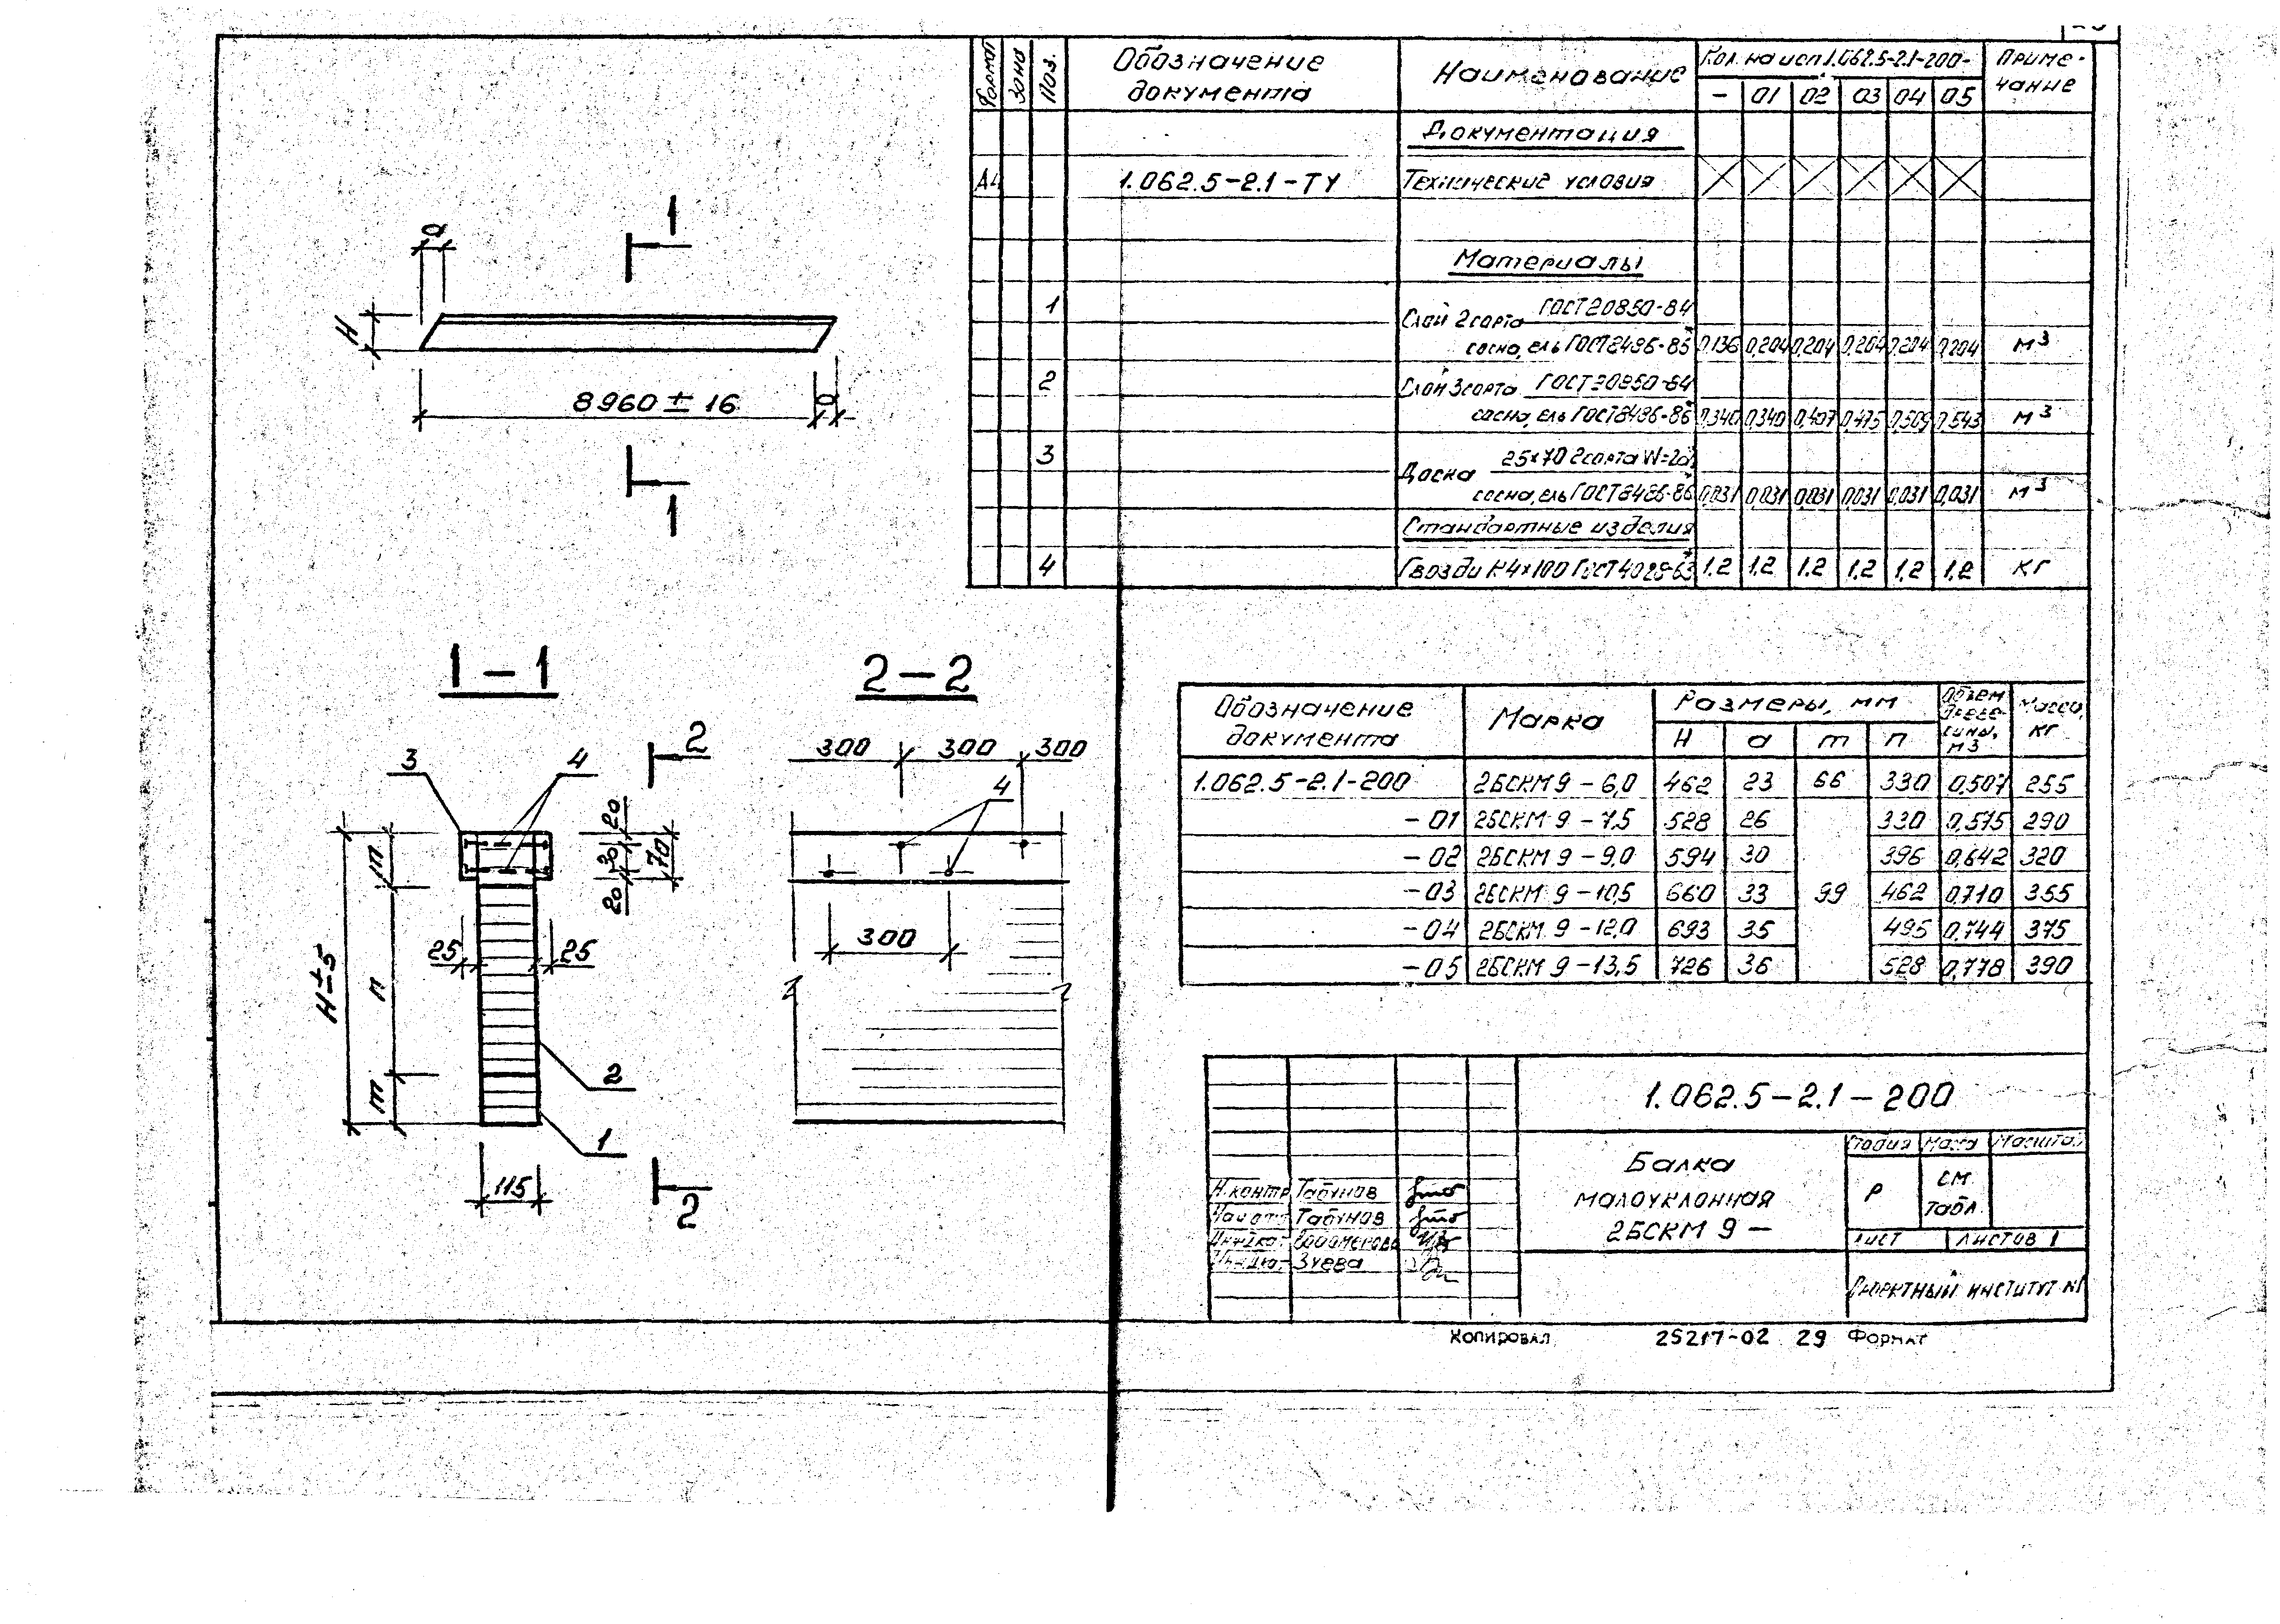 Формат Зона Поз. Обозначение документа Наименование Кол. на исп 1.062.5-2.1-200- Приме-чание
- 01 02 03 04 05
Документация
А4 1.062.5-2.1-ТУ Технические условия
Материалы
1 Слой 2 сорта ГОСТ 20850-84
сосна, ель ГОСТ 8486-86 0,136 0,204 0,204 0,204 0,204 0,204 м3
2 Слой 3 сорта ГОСТ 20850-84
сосна, ель ГОСТ 8486-86 0,340 0,340 0,407 0,475 0,509 0,543 м3
3 Доска 25×70 2 сорта W=20
сосна, ель ГОСТ 8486-86 0,031 0,031 0,031 0,031 0,031 0,031 м3
Стандартные изделия
4 Гвозди К4×100 ГОСТ 4028-63 1,2 1,2 1,2 1,2 1,2 1,2 кг
1
а
Н
8960 ± 16
а
1
1-1
2-2
3 4 2
300 300 300
4
20
30 70
20
m
n
m
Н±5
25 25
300
2
1
115
2
Обозначение документа Марка Размеры, мм Объем древе-сины, м3 Масса, кг
Н а m n
1.062.5-2.1-200 2БСКМ 9 - 6,0 462 23 66 330 0,507 255
-01 2БСКМ 9 - 7,5 528 26 330 0,575 290
-02 2БСКМ 9 - 9,0 594 30 396 0,642 320
-03 2БСКМ 9 - 10,5 660 33 99 462 0,710 355
-04 2БСКМ 9 - 12,0 693 35 495 0,744 375
-05 2БСКМ 9 - 13,5 726 36 528 0,778 390
1.062.5-2.1-200
Балка
малоуклонная
2БСКМ 9 -
Стадия Масса Масштаб
Р см. табл.
Лист Листов 1
Проектный институт №1
Н.контр Табунов
Нач.отд Табунов
Зуева
Копировал 25217-02 29 Формат